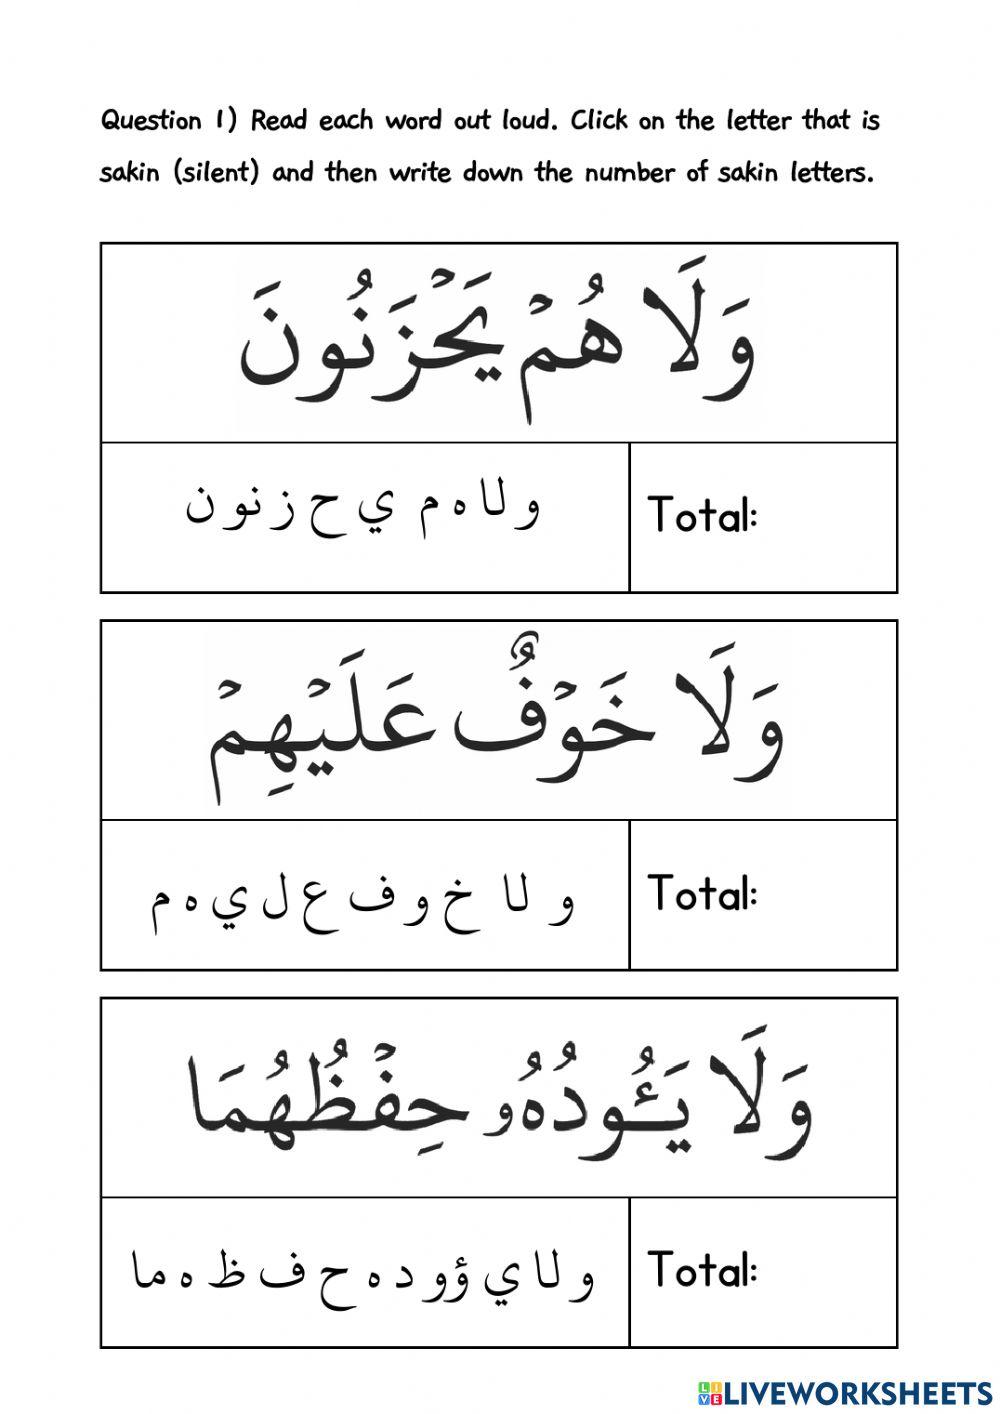 Question 1) Read each word out loud. Click on the letter that is
sakin (silent) and then write down the number of sakin letters.
وَلَا هُمۡ يَحۡزَنُونَ
و لا ه م ي ح ز نو ن
Total:
وَلَا خَوۡفٌ عَلَيۡهِمۡ
و لا خ و ف ع ل ي ه م
Total:
وَلَا يَـُٔودُهُۥ حِفۡظُهُمَا
و لا ي ؤو د ه ح ف ظ ه ما
Total:
LIVEWORKSHEETS